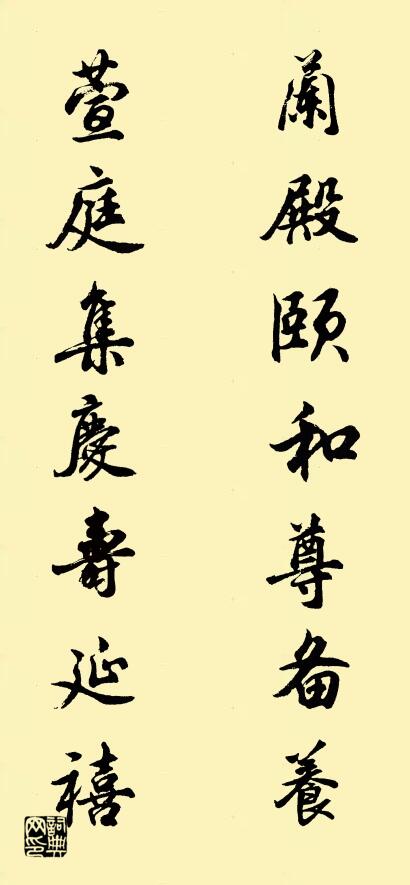 蘭殿頤和尊备養
萱庭集慶壽延禧
詞典网印